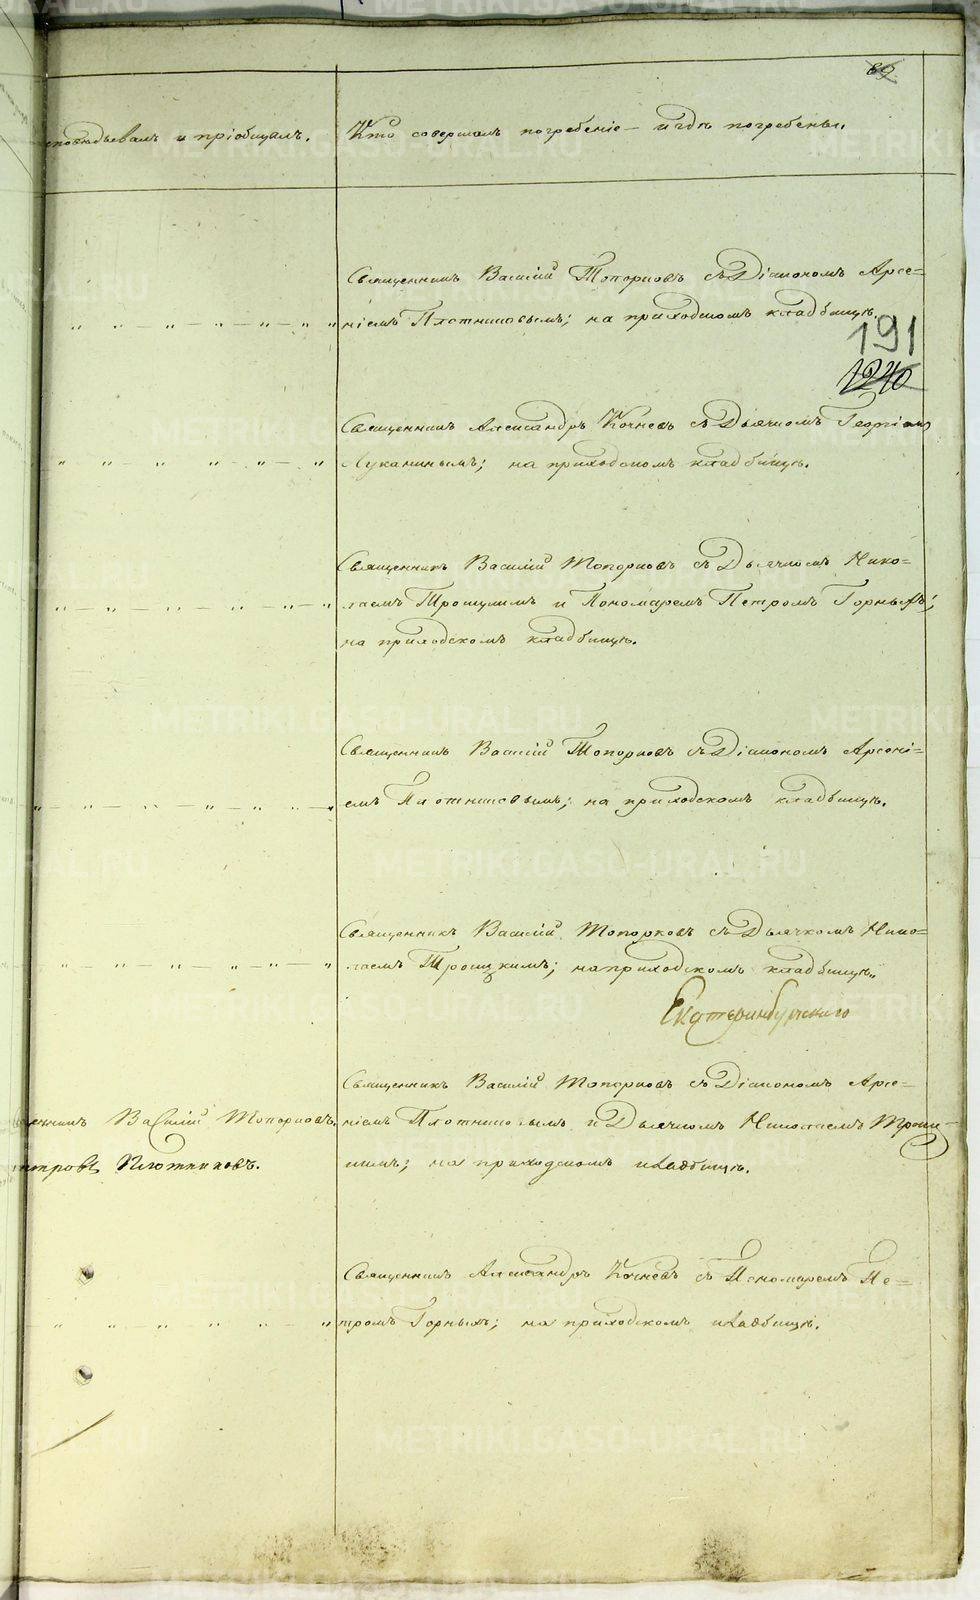 89.
исповѣдывалъ и пріобщалъ.
Кто совершалъ погребеніе и гдѣ погребены.
Священникъ Василій Топорковъ съ Діакономъ Арсе-
ніемъ Плотниковымъ; на приходскомъ кладбищѣ.
191
1240
Священникъ Александръ Кочневъ съ Дьячкомъ Георгіемъ
Луканинымъ; на приходскомъ кладбищѣ.
Священникъ Василій Топорковъ съ Дьячкомъ Нико-
лаемъ Троицкимъ и Пономаремъ Петромъ Горныхъ;
на приходскомъ кладбищѣ.
Священникъ Василій Топорковъ съ Діакономъ Арсені-
емъ Плотниковымъ; на приходскомъ кладбищѣ.
Священникъ Василій Топорковъ съ Дьячкомъ Нико-
лаемъ Троицкимъ; на приходскомъ кладбищѣ.
Екатеринбургскаго
Священникъ Василій Топорковъ съ Діакономъ Арсе-
щенникъ Василій Топорковъ.
ніемъ Плотниковымъ и Дьячкомъ Николаемъ Троиц-
Плотниковъ.
кимъ; на приходскомъ кладбищѣ.
Священникъ Александръ Кочневъ съ Пономаремъ Пе-
тромъ Горныхъ; на приходскомъ кладбищѣ.
METRIKI.GASO-URAL.RU